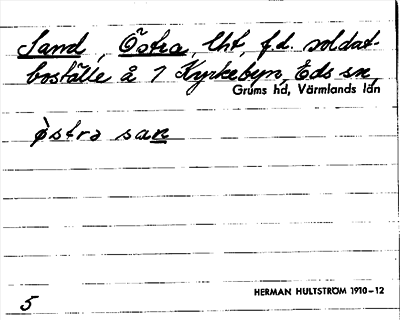 Sand, Östra, lht, f.d. soldat-
boställe å 7 Kyrkebyn, Eds sn,
Grums hd, Värmlands län
östra san
HERMAN HULTSTRÖM 1910-12
5